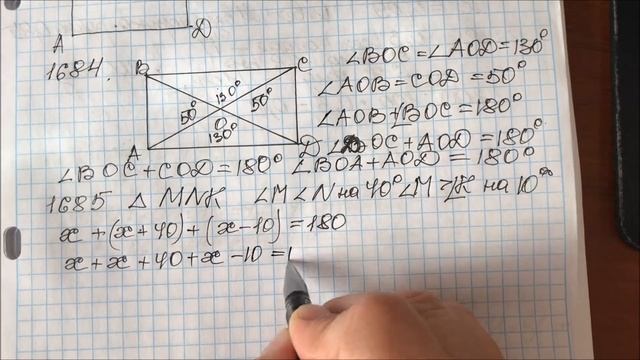 A D
1684.
B C
130°
50° 50°
O
130°
A D
∠BOC = ∠AOD = 130°
∠AOB = COD = 50°
∠AOB + BOC = 180°
∠DOC + AOD = 180°
∠BOC + COD = 180° ∠BOA + AOD = 180°
1685 △ MNK ∠M < ∠N на 40° ∠M > ∠K на 10°
x + (x + 40) + (x - 10) = 180
x + x + 40 + x - 10 = 1